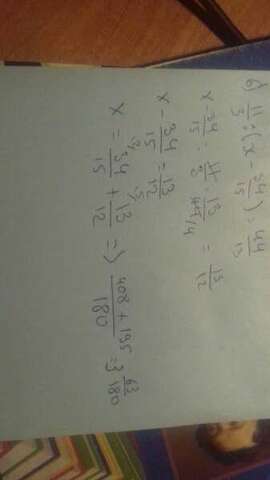 б) 11/3 : (x - 34/15) = 44/13
x - 34/15 = 11/3 · 13/44 4 = 13/12
x - 34/15 = 13/12
x = 34/15 + 13/12 => 408 + 195/180 = 3 63/180